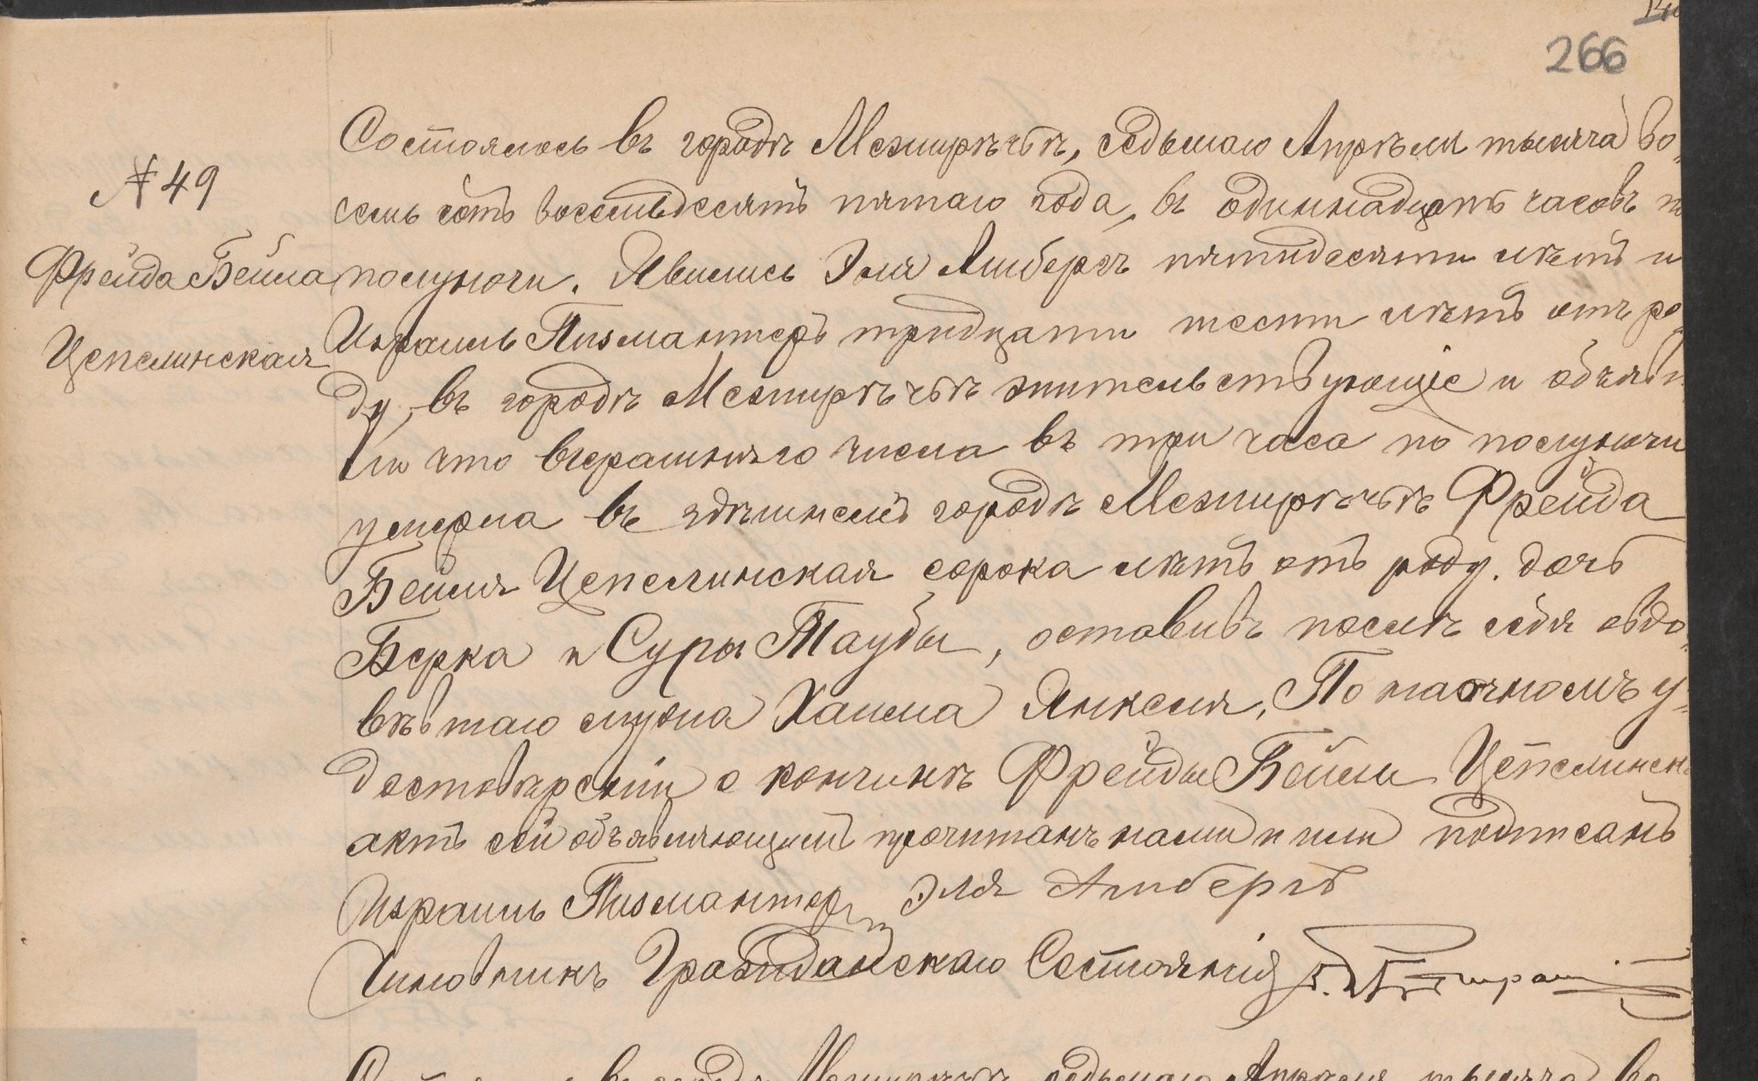 266
№ 49
Фрейда Бейла
Цепелинская
Состоялось въ городѣ Межирѣчьѣ, седьмаго Апрѣля тысяча во-
семь сотъ восемьдесятъ пятаго года, въ одиннадцать часовъ по
полуночи. Явились Эля Амбергъ пятидесяти лѣтъ и
Израиль Пизмантеръ тридцати шести лѣтъ отъ ро
ду, въ городѣ Межирѣчьѣ жительствующіе и объяви
ли что вчерашняго числа въ три часа по полуночи
умерла въ здѣшнемъ городѣ Межирѣчьѣ Фрейда
Бейля Цепелинская сорока лѣтъ отъ роду. дочь
Берка и Суры Таубы, оставивъ послѣ себя овдо-
вѣвшаго мужа Хаима Янкеля, По наочномъ у-
достовѣреніи о кончинѣ Фрейды Бейли Цепелинск
актъ сей объявляющимъ прочитанъ нами и ими подписанъ
Израиль Пизмантеръ Эля Амбергъ
Чиновникъ Гражданскаго Состоянія